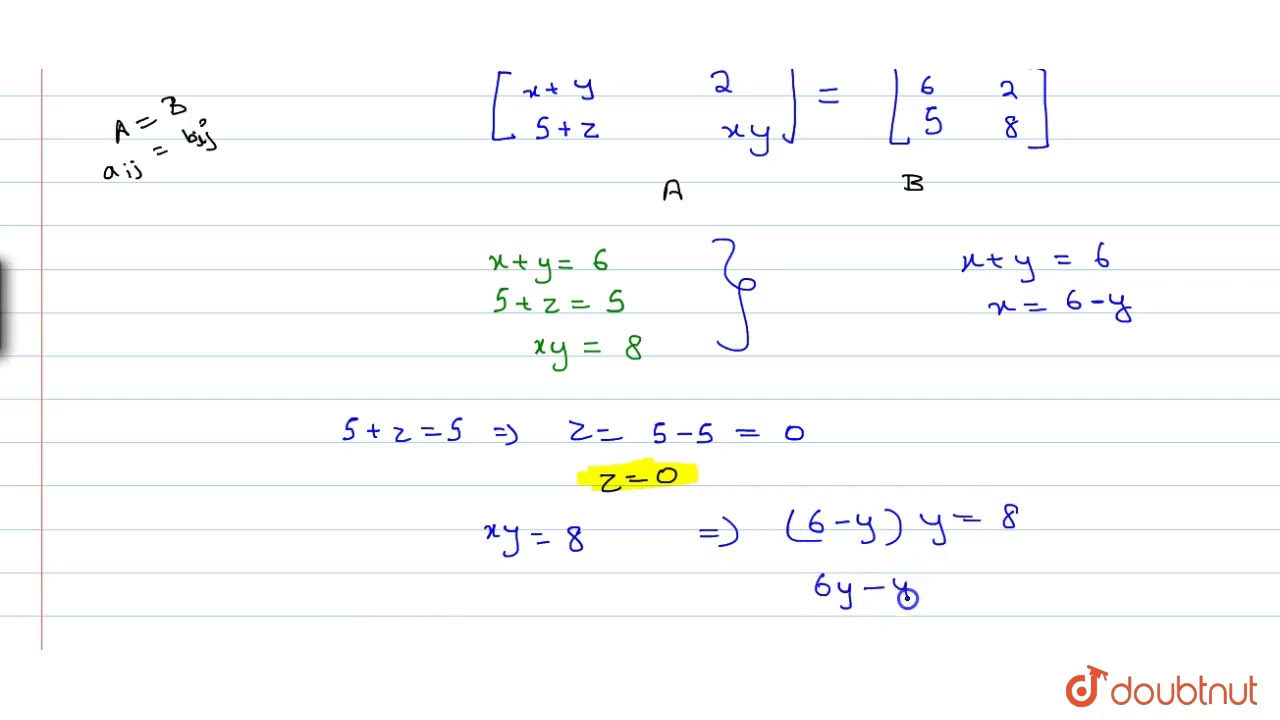 A = B
aij = bij
[x+y 2] = [6 2]
[5+z xy] [5 8]
A B
x+y = 6
5+z = 5
xy = 8
x+y = 6
x = 6-y
5+z=5 => z= 5-5 = 0
z=0
xy = 8 => (6-y) y = 8
6y - y
doubtnut